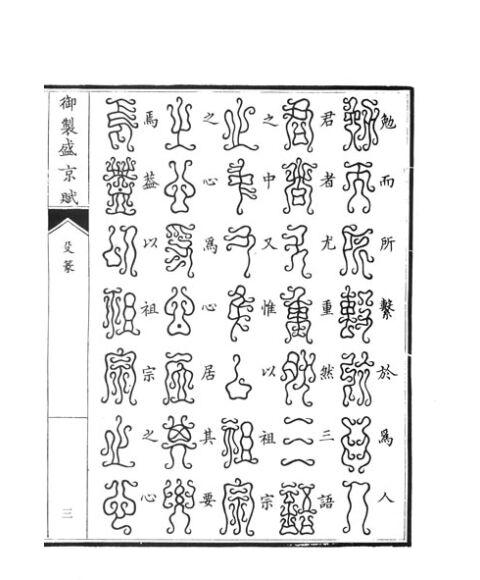 勉而所繫於爲人
君者尤重然三語
之中又惟以祖宗
之心爲心居其要
焉葢以祖宗之心
御製盛京賦
殳篆
三